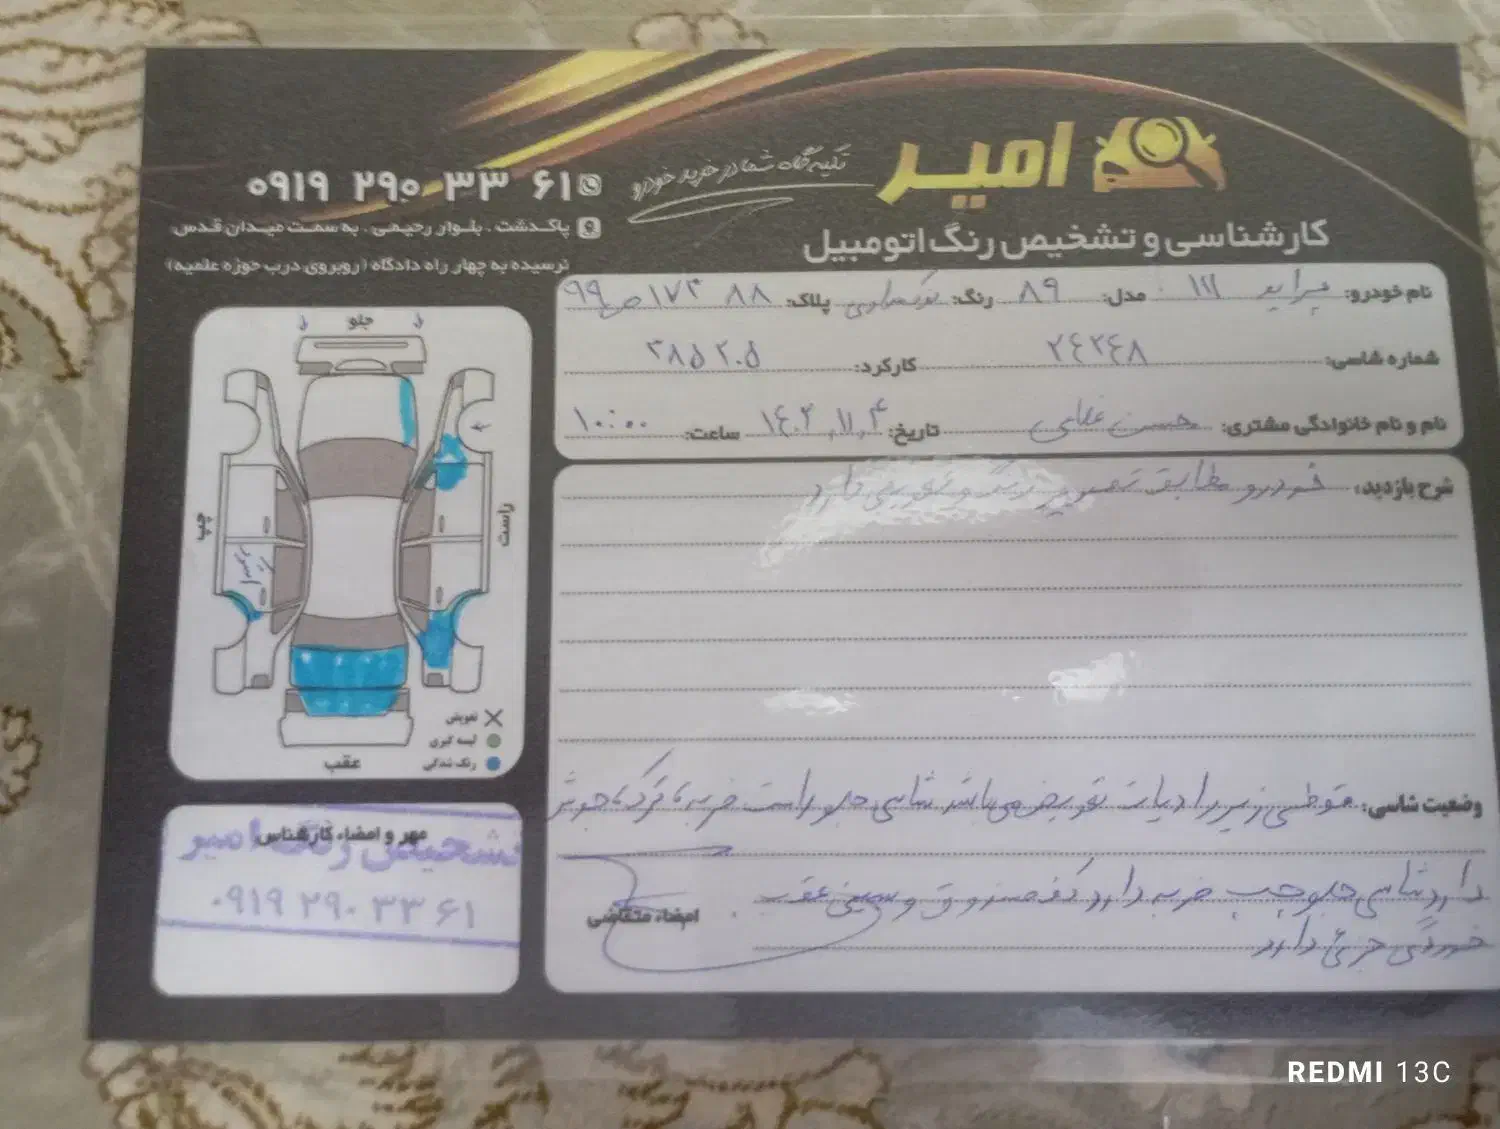 امیر
تکیه‌گاه شما در خرید خودرو
کارشناسی و تشخیص رنگ اتومبیل
۰۹۱۹ ۲۹۰ ۳۳ ۶۱
پاکدشت . بلوار رحیمی . به سمت میدان قدس.
نرسیده به چهار راه دادگاه (روبروی درب حوزه علمیه)
نام خودرو: پراید ۱۱۱ مدل: ۸۹ رنگ: پلاک: ۸۸ ۱۷۳ ص ۹۹
شماره شاسی: ۲۴۲۴۸ کارکرد: ۳۸۵۲۰۵
نام و نام خانوادگی مشتری: حسن غلامی تاریخ: ۱۴۰۲,۱۱,۴ ساعت: ۱۰:۰۰
شرح بازدید: خودرو مطابق تصویر رنگ و تعویض دارد
وضعیت شاسی: قوطی زیر رادیات تعویض می‌باشد شاسی جلو راست ضربه، ترک، جوش
دارد شاسی جلو چپ ضربه دارد کف صندوق و سینی عقب
خوردگی جزئی دارد
امضاء متقاضی
جلو
راست
چپ
آستر
تعویض
لیسه گیری
رنگ شدگی
عقب
مهر و امضاء کارشناس
تشخیص رنگ امیر
۰۹۱۹ ۲۹۰ ۳۳ ۶۱
REDMI 13C